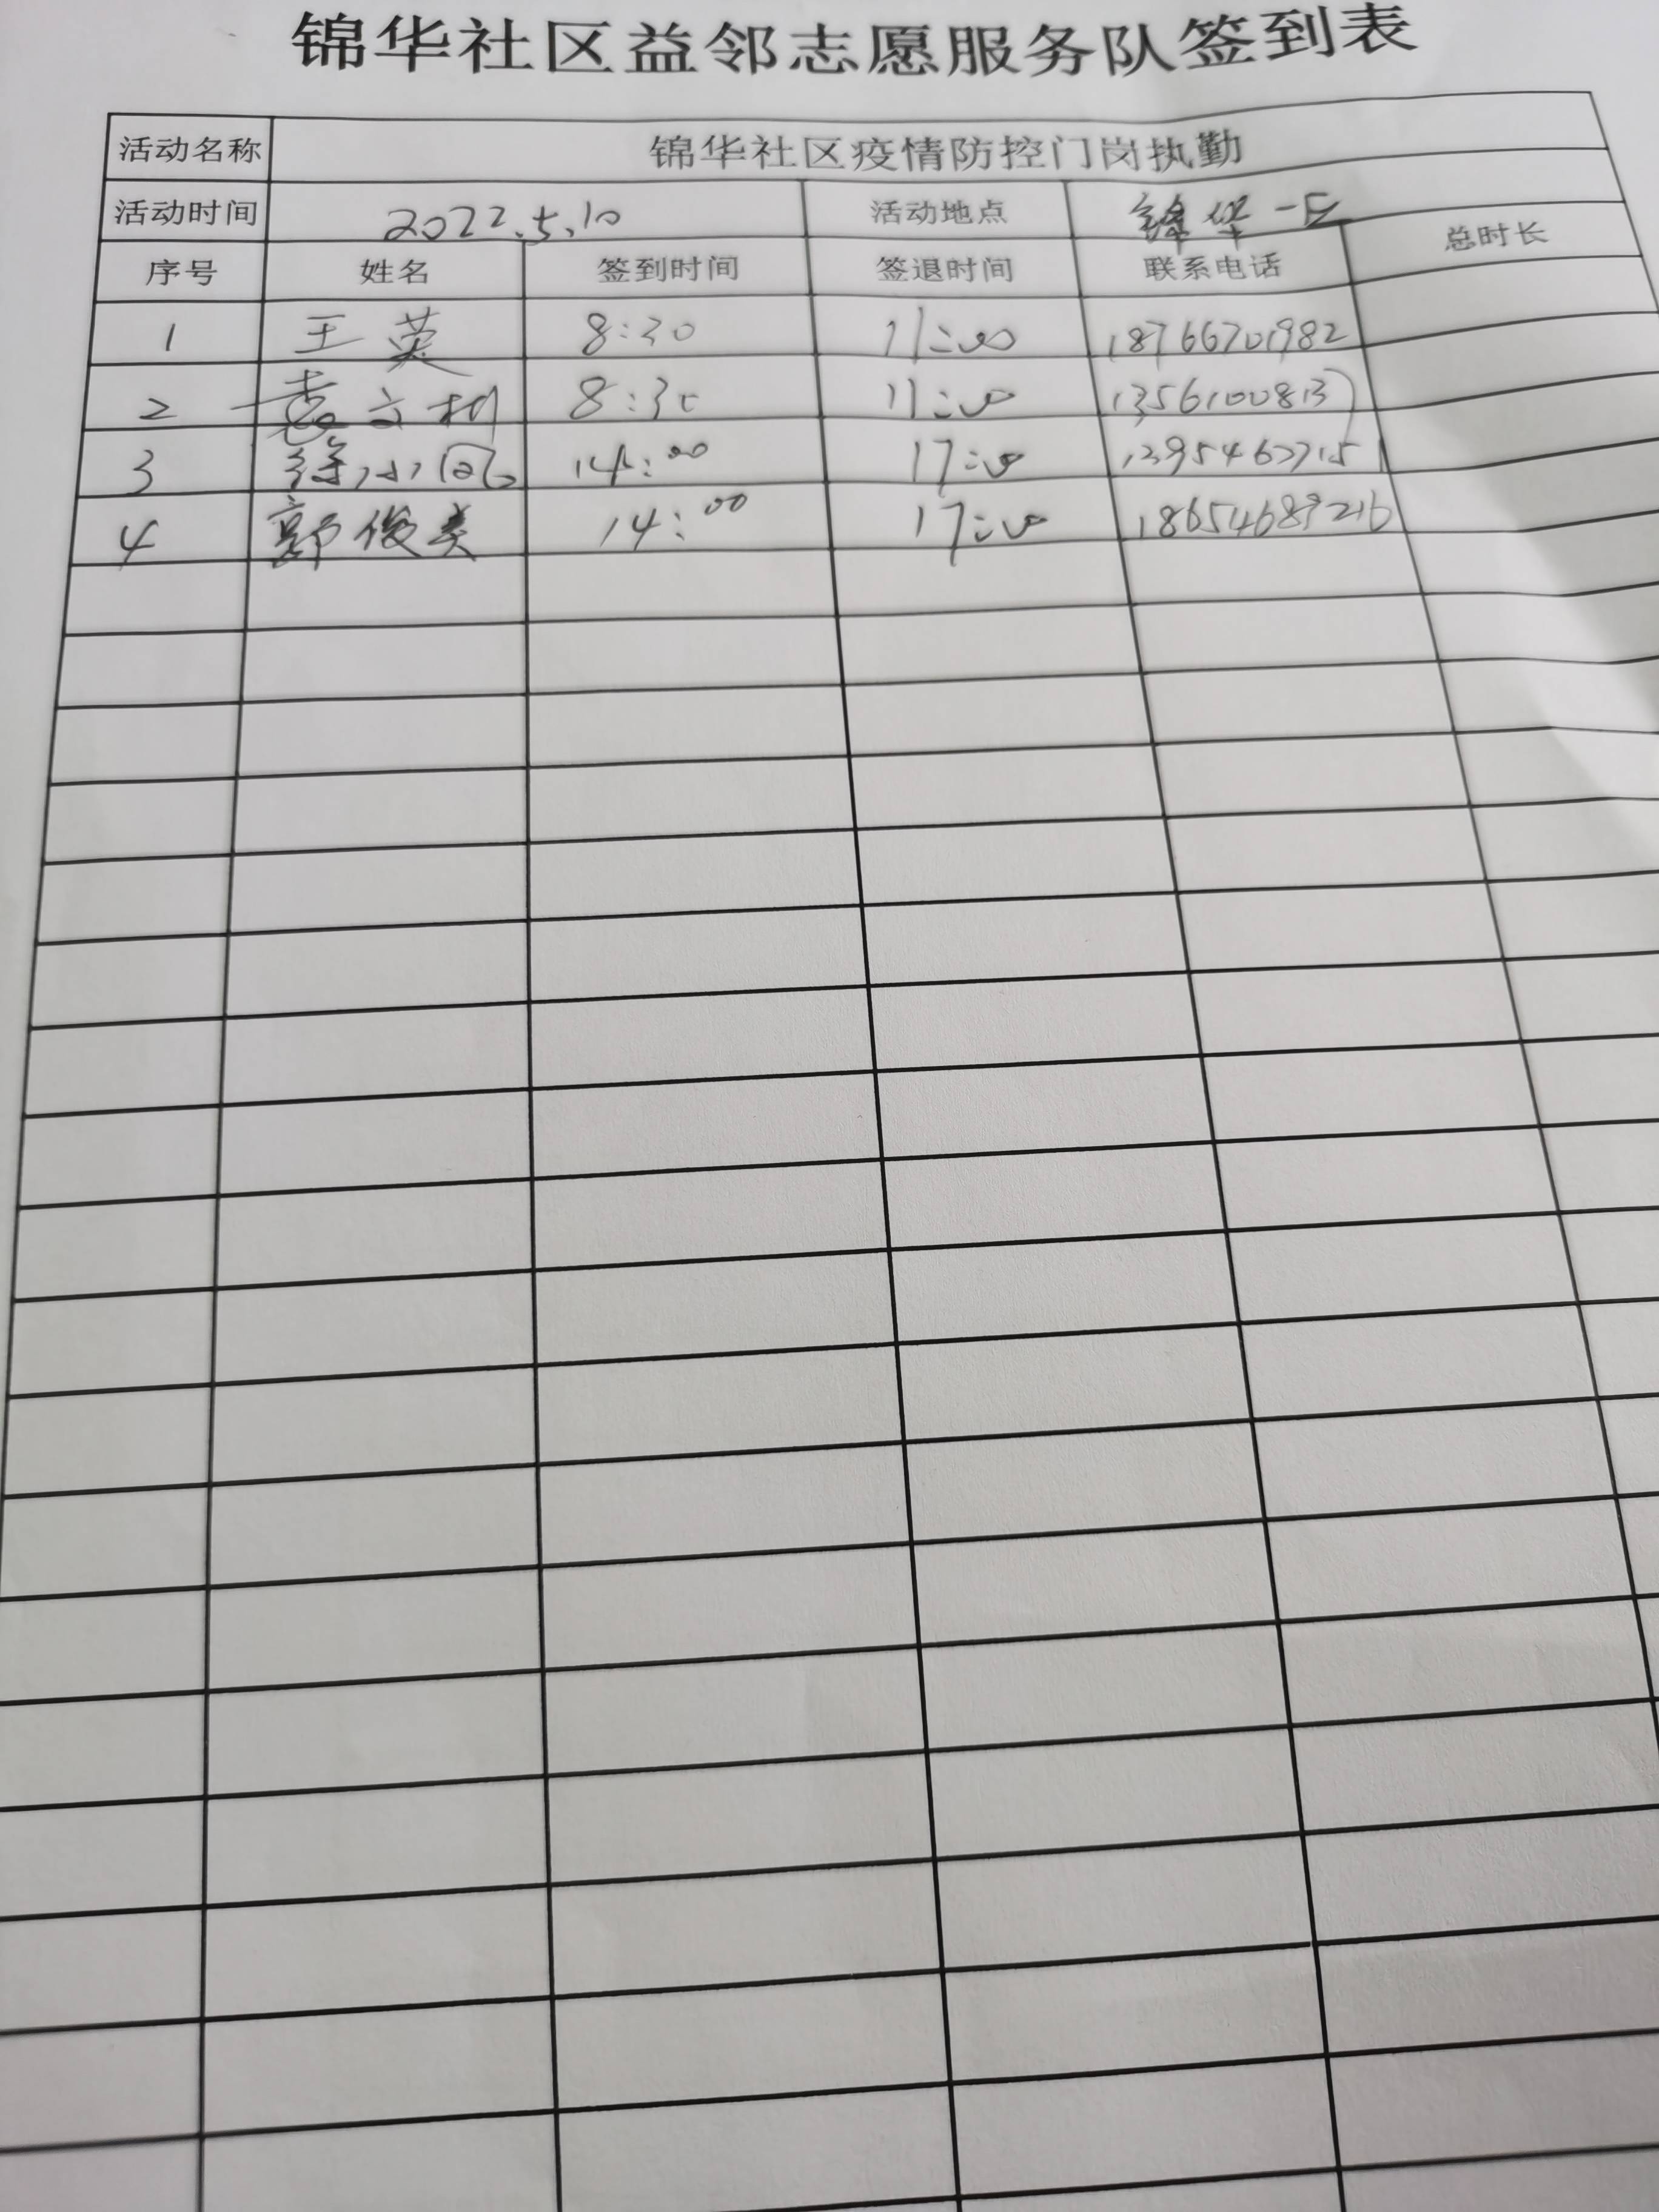 锦华社区益邻志愿服务队签到表
活动名称 锦华社区疫情防控门岗执勤
活动时间 2022.5.10 活动地点 锦华一区
序号 姓名 签到时间 签退时间 联系电话 总时长
1 王英 8:30 11:00 18766701982
2 袁文树 8:30 11:00 13561008137
3 徐小冈 14:00 17:00
4 郭俊美 14:00 17:00 18654689216